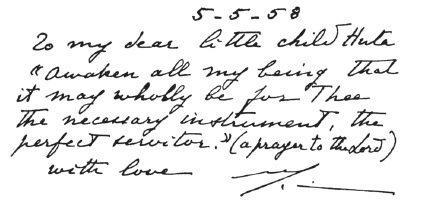 5-5-58
To my dear little child Huta
"Awaken all my being that
it may wholly be for Thee
the necessary instrument, the
perfect servitor." (a prayer to the Lord)
with love